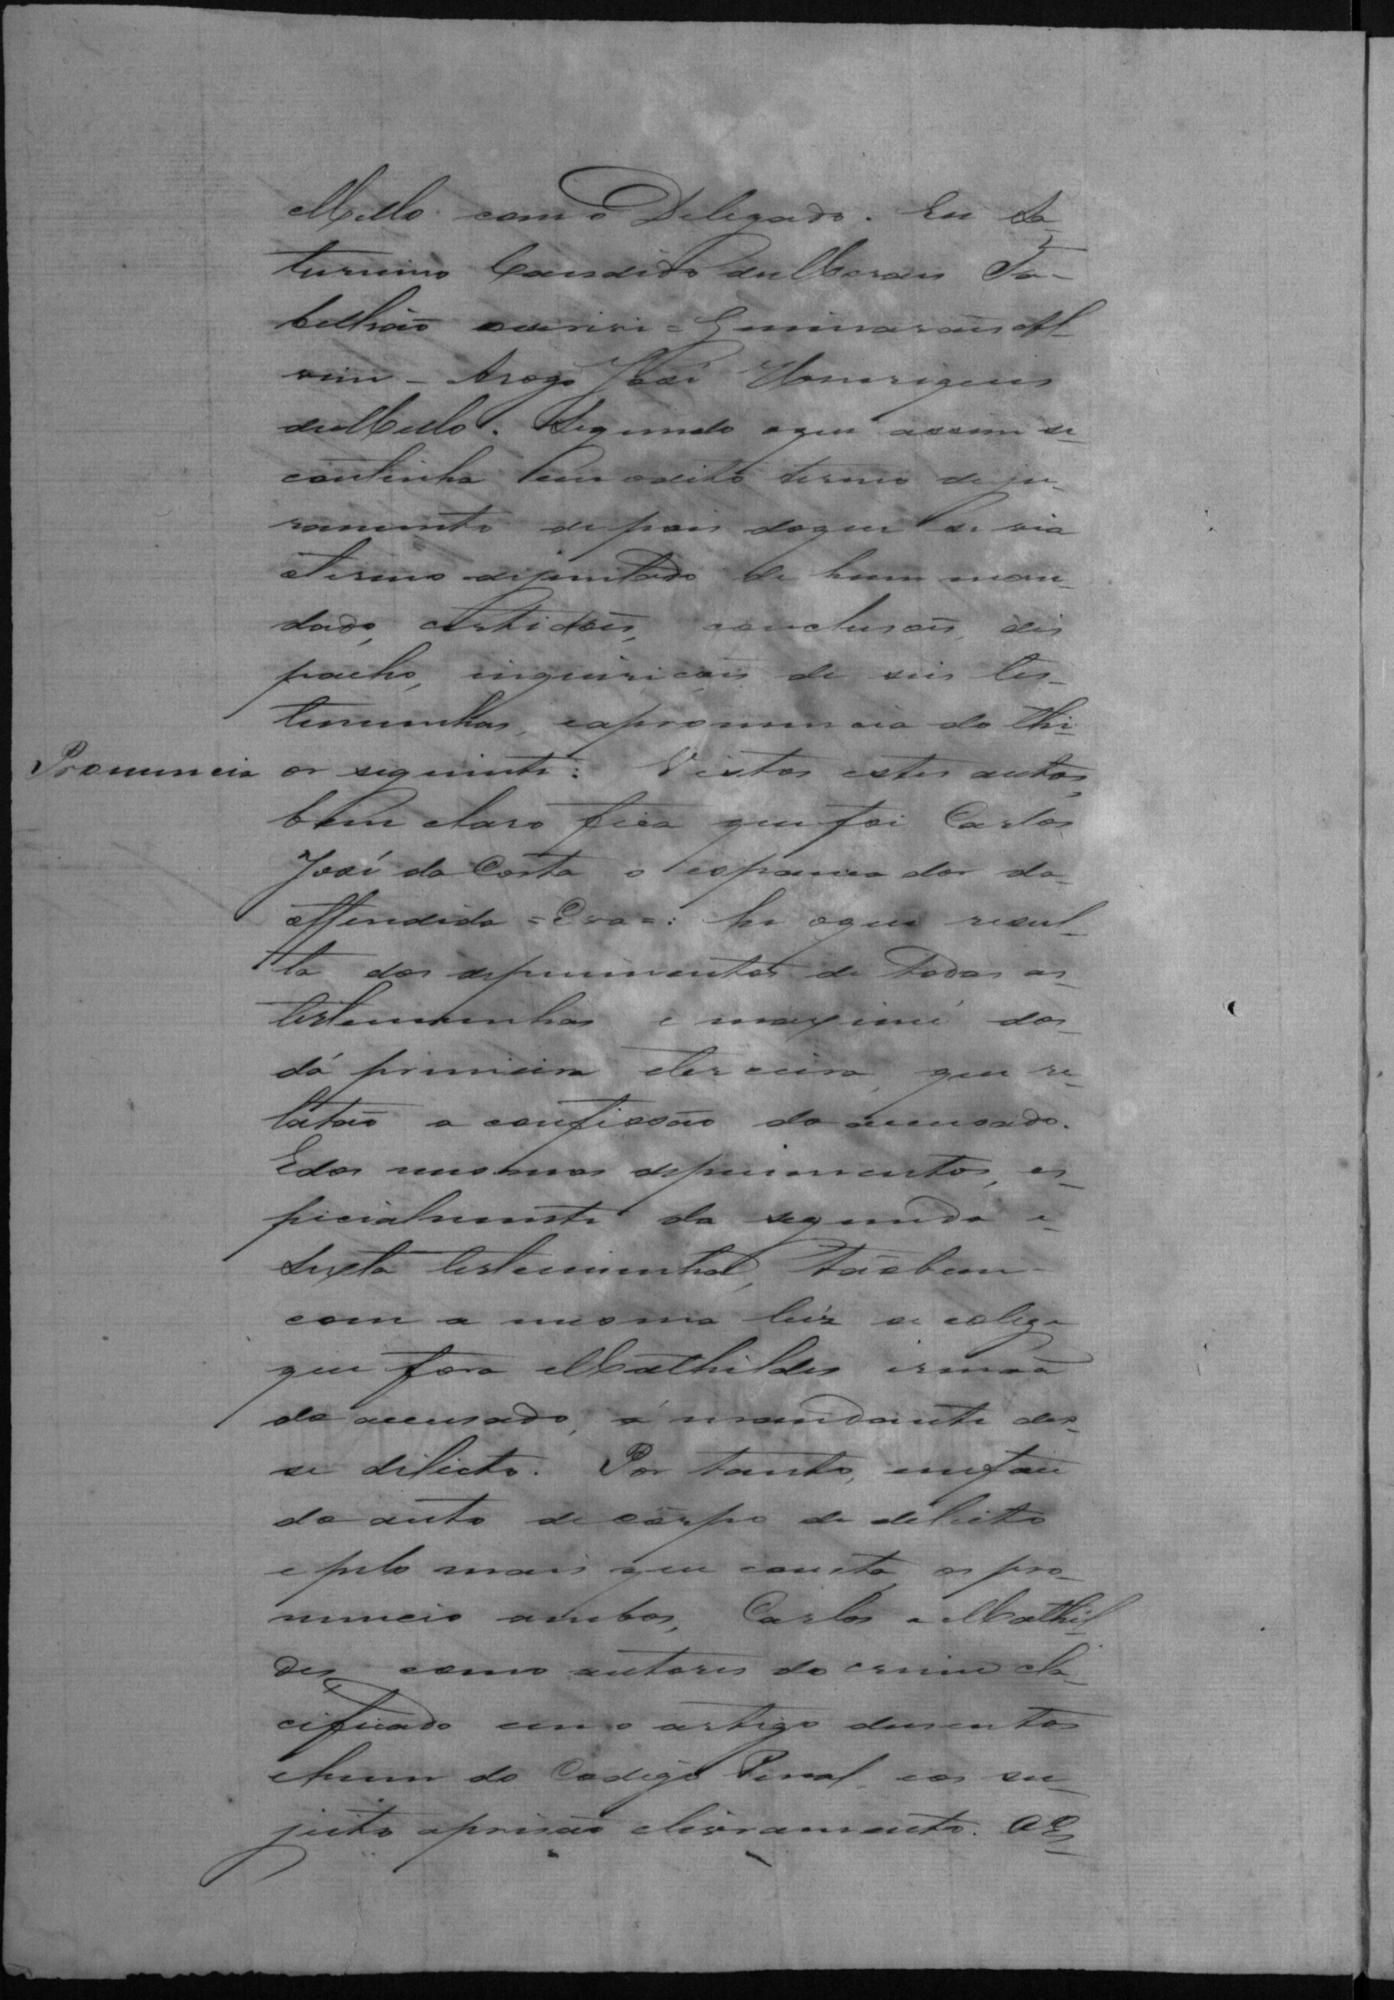 Mello como Delegado. Eu Sa-
turnino Candido de Moraes Ta-
bellião escrivi = Guimarães Al-
vim - Arogo José Henriques
de Mello. Segundo oque assim se
continha em odito termo de ju-
ramento depois doque se via
otermo dejuntada de hum man-
dado, certidões, conclusões, des
pacho, inquirições de seis tes-
temunhas, eapronuncia do thi-
Pronuncia or seguinte: Vistos estes autos,
bem claro fica que foi Carlos
José da Costa o espancador da
offendida = Eva =: he oque resul-
ta dos depuimentos de todas as
testemunhas e maximé dos
da primeira eterceira, que re-
latão a confissão do accusado.
Edos mesmos depuimentos, es-
picialmente da segunda e
sexta testemunha, tãobem
com a mesma luz se colige
que fora Mathildes irmaã
do accusado, a mandante des-
se delicto. Por tanto, em face
do auto de corpo de delicto
e pelo mais que consta, os pro-
nuncio ambos, Carlos e Mathil
des como autores do crime cla-
cificado em o artigo dusentos
ehum do Codigo Penal, eos su-
jeito aprisão elivramento. OEs-